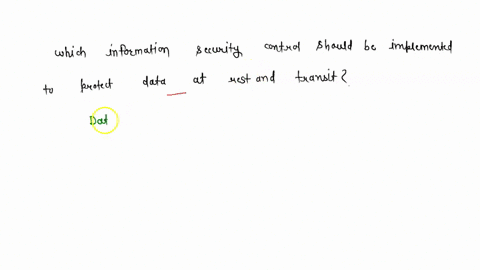 which information security control should be implemented
to protect data at rest and transit?
Dat